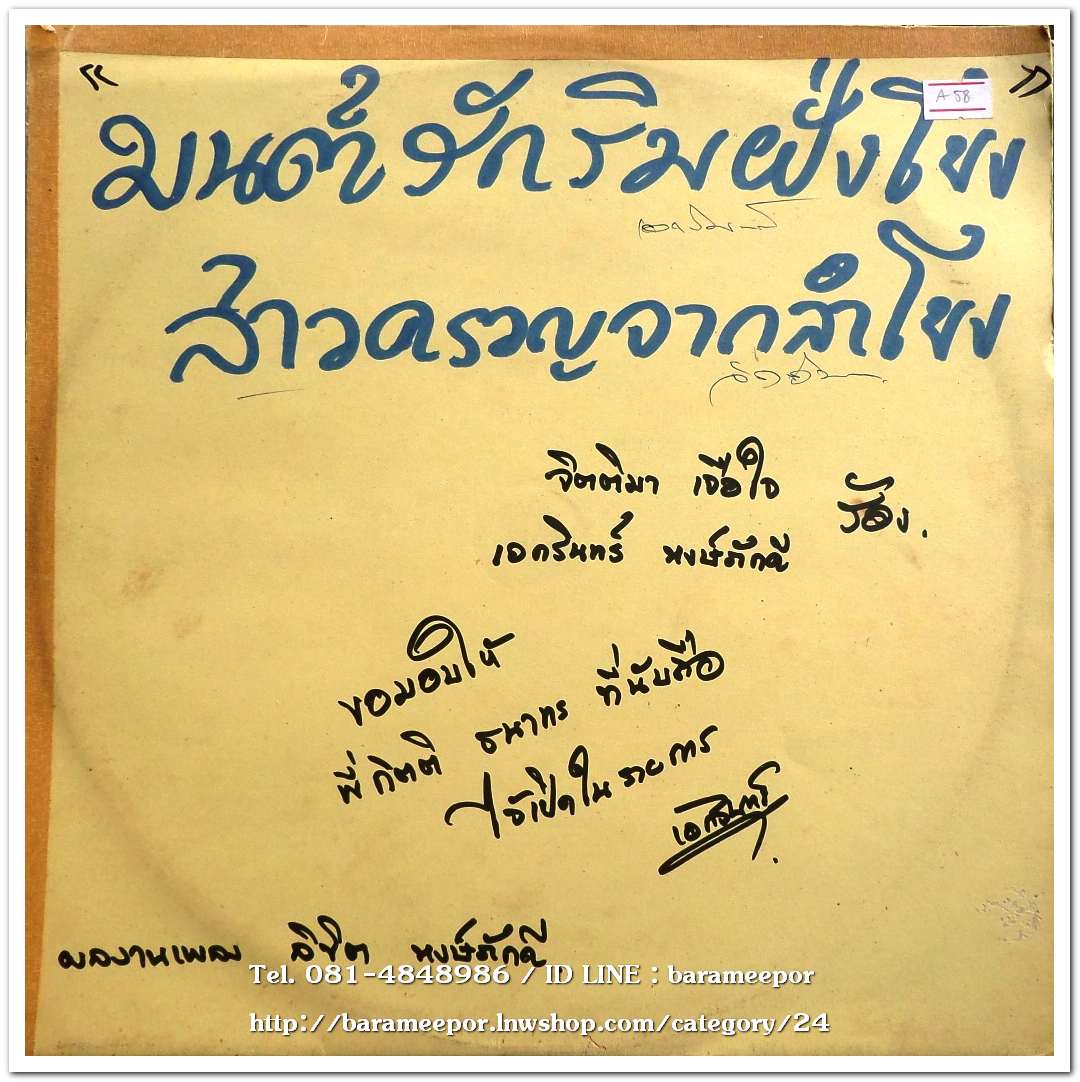 "
"
A-58
มนต์รักริมฝั่งโขง
เอกรินทร์
สาวครวญจากลำโขง
จิตติมา เจือใจ
ร้อง.
เอกรินทร์ หงษ์ภักดี
ขอมอบให้
พี่กิตติ ธนากร ที่นับถือ
ไว้เปิดในรายการ
เอกรินทร์
ผลงานเพลง ลิขิต หงษ์ภักดี
Tel. 081-4848986 / ID LINE : barameepor
http://barameepor.lnwshop.com/category/24